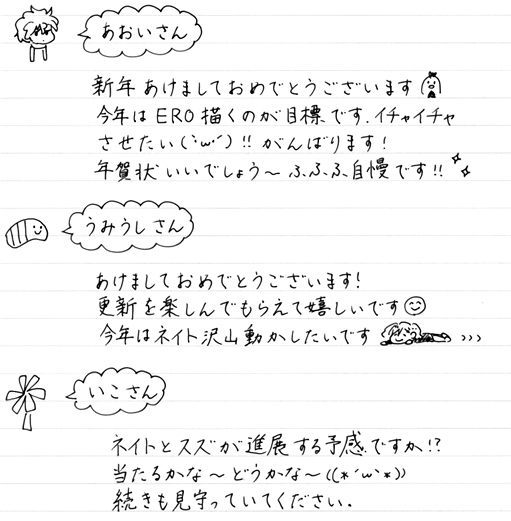 あおいさん
新年あけましておめでとうございます
今年はERO描くのが目標です.イチャイチャ
させたい(`・ω・´)!!がんばります!
年賀状いいでしょう〜ふふふ自慢です!!
うみうしさん
あけましておめでとうございます!
更新を楽しんでもらえて嬉しいです☺
今年はネイト沢山動かしたいです
いこさん
ネイトとスズが進展する予感ですか!?
当たるかな〜どうかな〜((*´ω`*))
続きも見守っていてください.